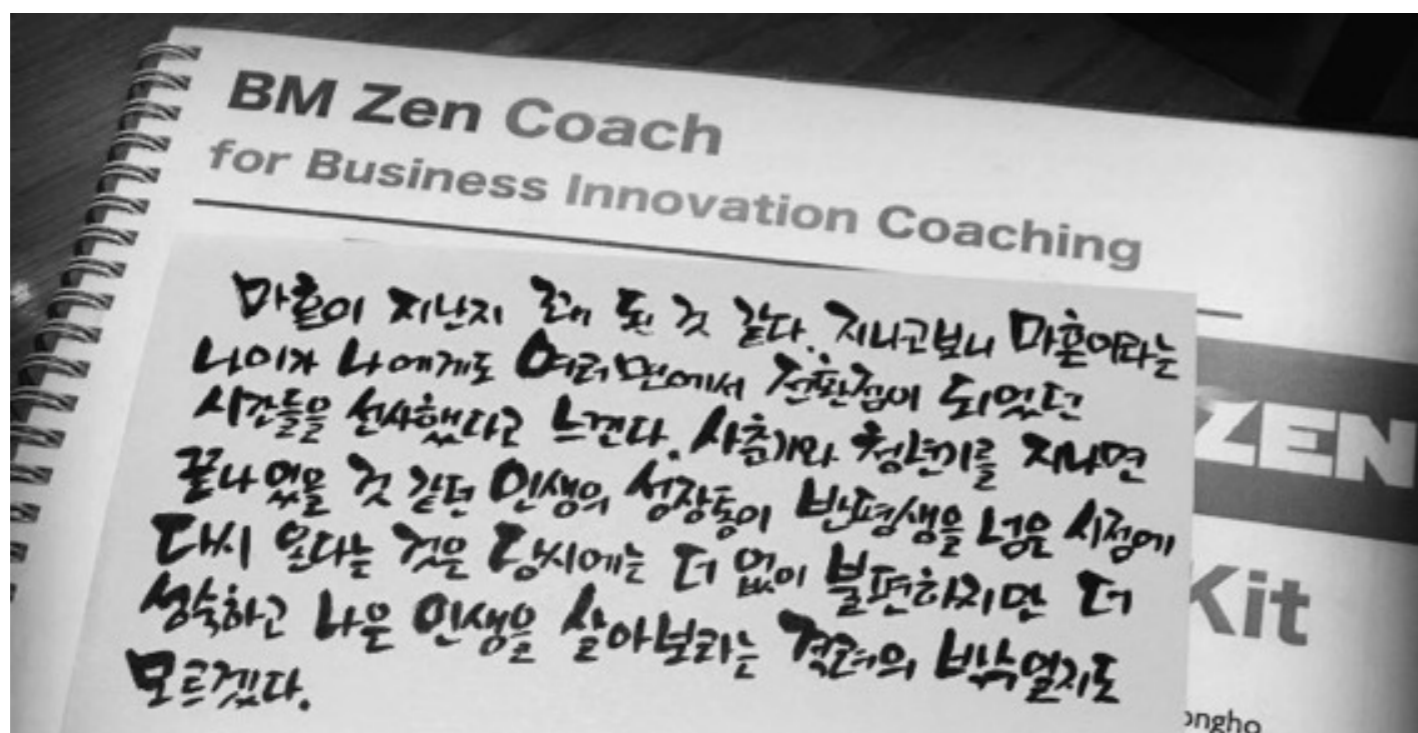 BM Zen Coach
for Business Innovation Coaching
마흔이 지난지 꽤 된 것 같다. 지나고보니 마흔이라는
나이가 나에게도 여러면에서 전환점이 되었던
시간들을 선사했다고 느낀다. 사춘기와 청년기를 지나면
끝나 있을 것 같던 인생의 성장통이 반평생을 넘은 시점에
다시 온다는 것은 당시에는 더 없이 불편하지만 더
성숙하고 나은 인생을 살아보라는 격려의 박수일지도
모르겠다.
ZEN
Kit
ongho